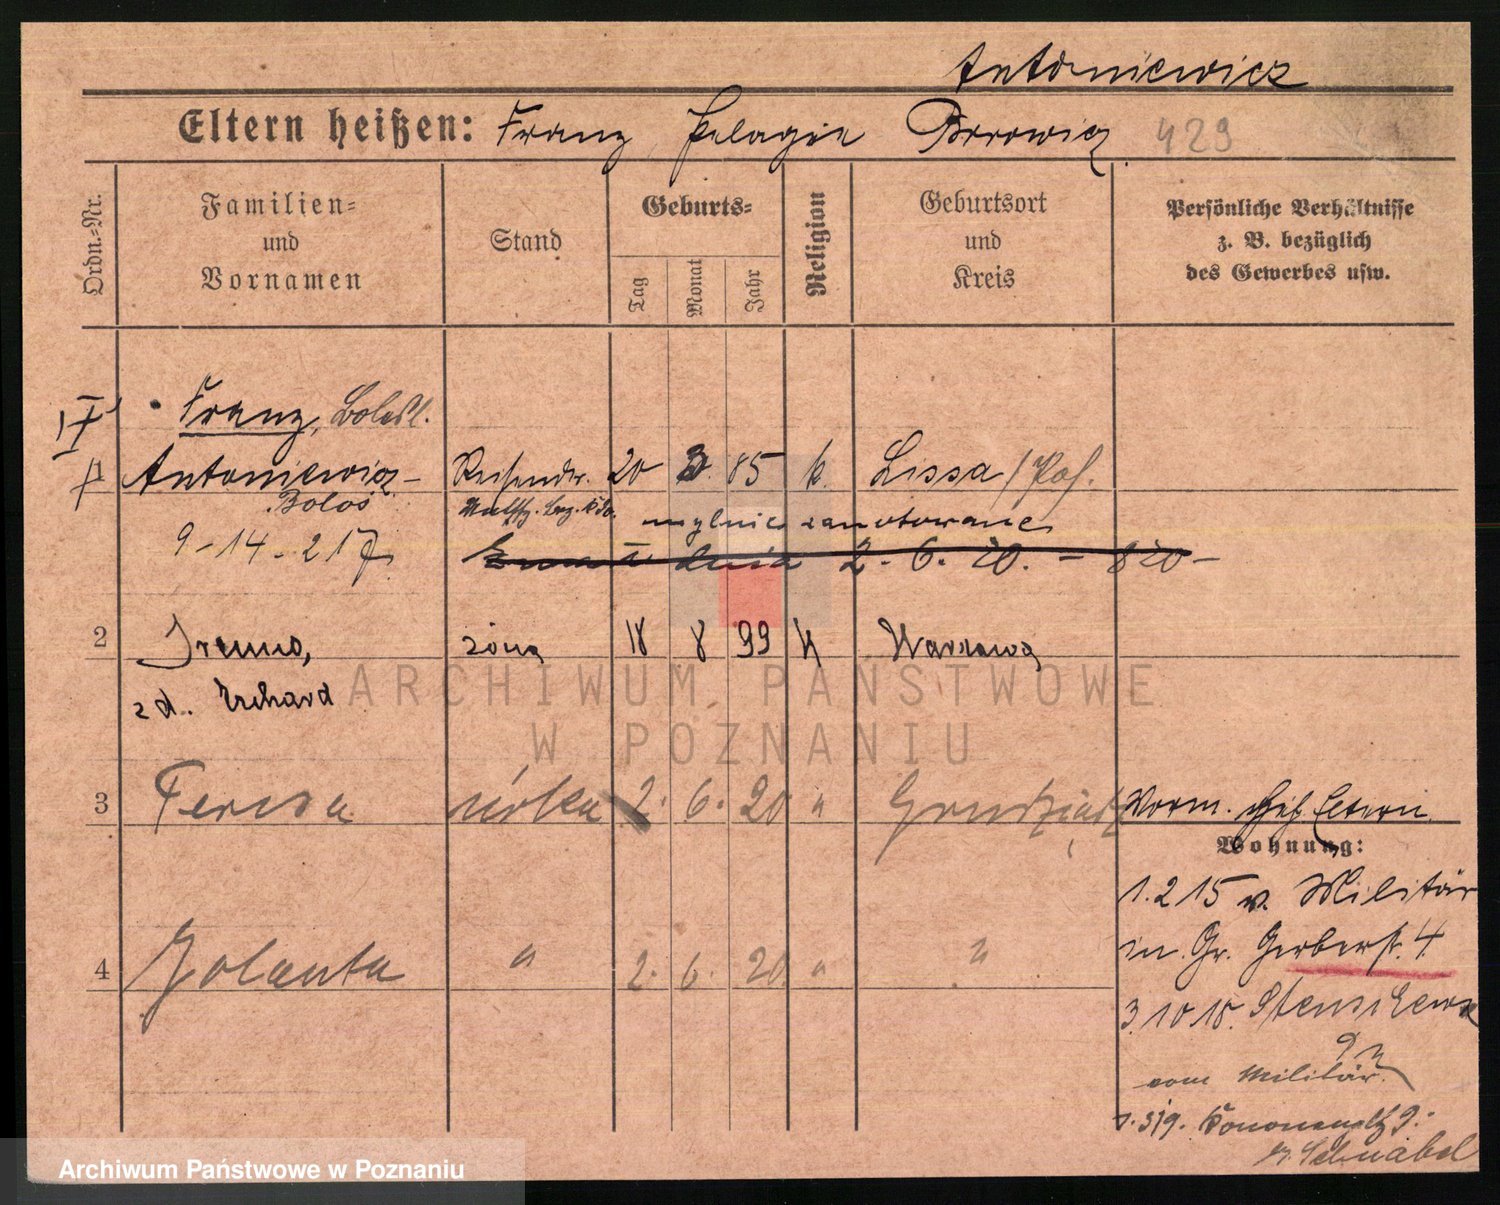 Antoniewicz
Eltern heißen: Franz, Pelagie Borowicz 429
Ordn.-Nr.
Familien- und Vornamen
Stand
Geburts-
Tag
Monat
Jahr
Religion
Geburtsort und Kreis
Persönliche Verhältnisse z. B. bezüglich des Gewerbes usw.
Franz, Bolesl.
1 Antoniewicz - Reisender. 20 3. 85 k. Lissa / Pos.
Bolos
mylnie zanotowane
9-14-217
dnia 2. 6. 20. - 820 -
2 Irena, żona 18 8 99 k Warszawa
zd. Erhard
3 Teresa córka 2. 6. 20 " Grudziądz
Vorm. Geh. Eltern.
Wohnung:
1.2 15 v. Militär
in. Gr. Gerberst. 4.
4 Jolanta " 2. 6. 20. " "
3.10 18.
vom Militär.
Schnabel
ARCHIWUM PAŃSTWOWE
W POZNANIU
Archiwum Państwowe w Poznaniu